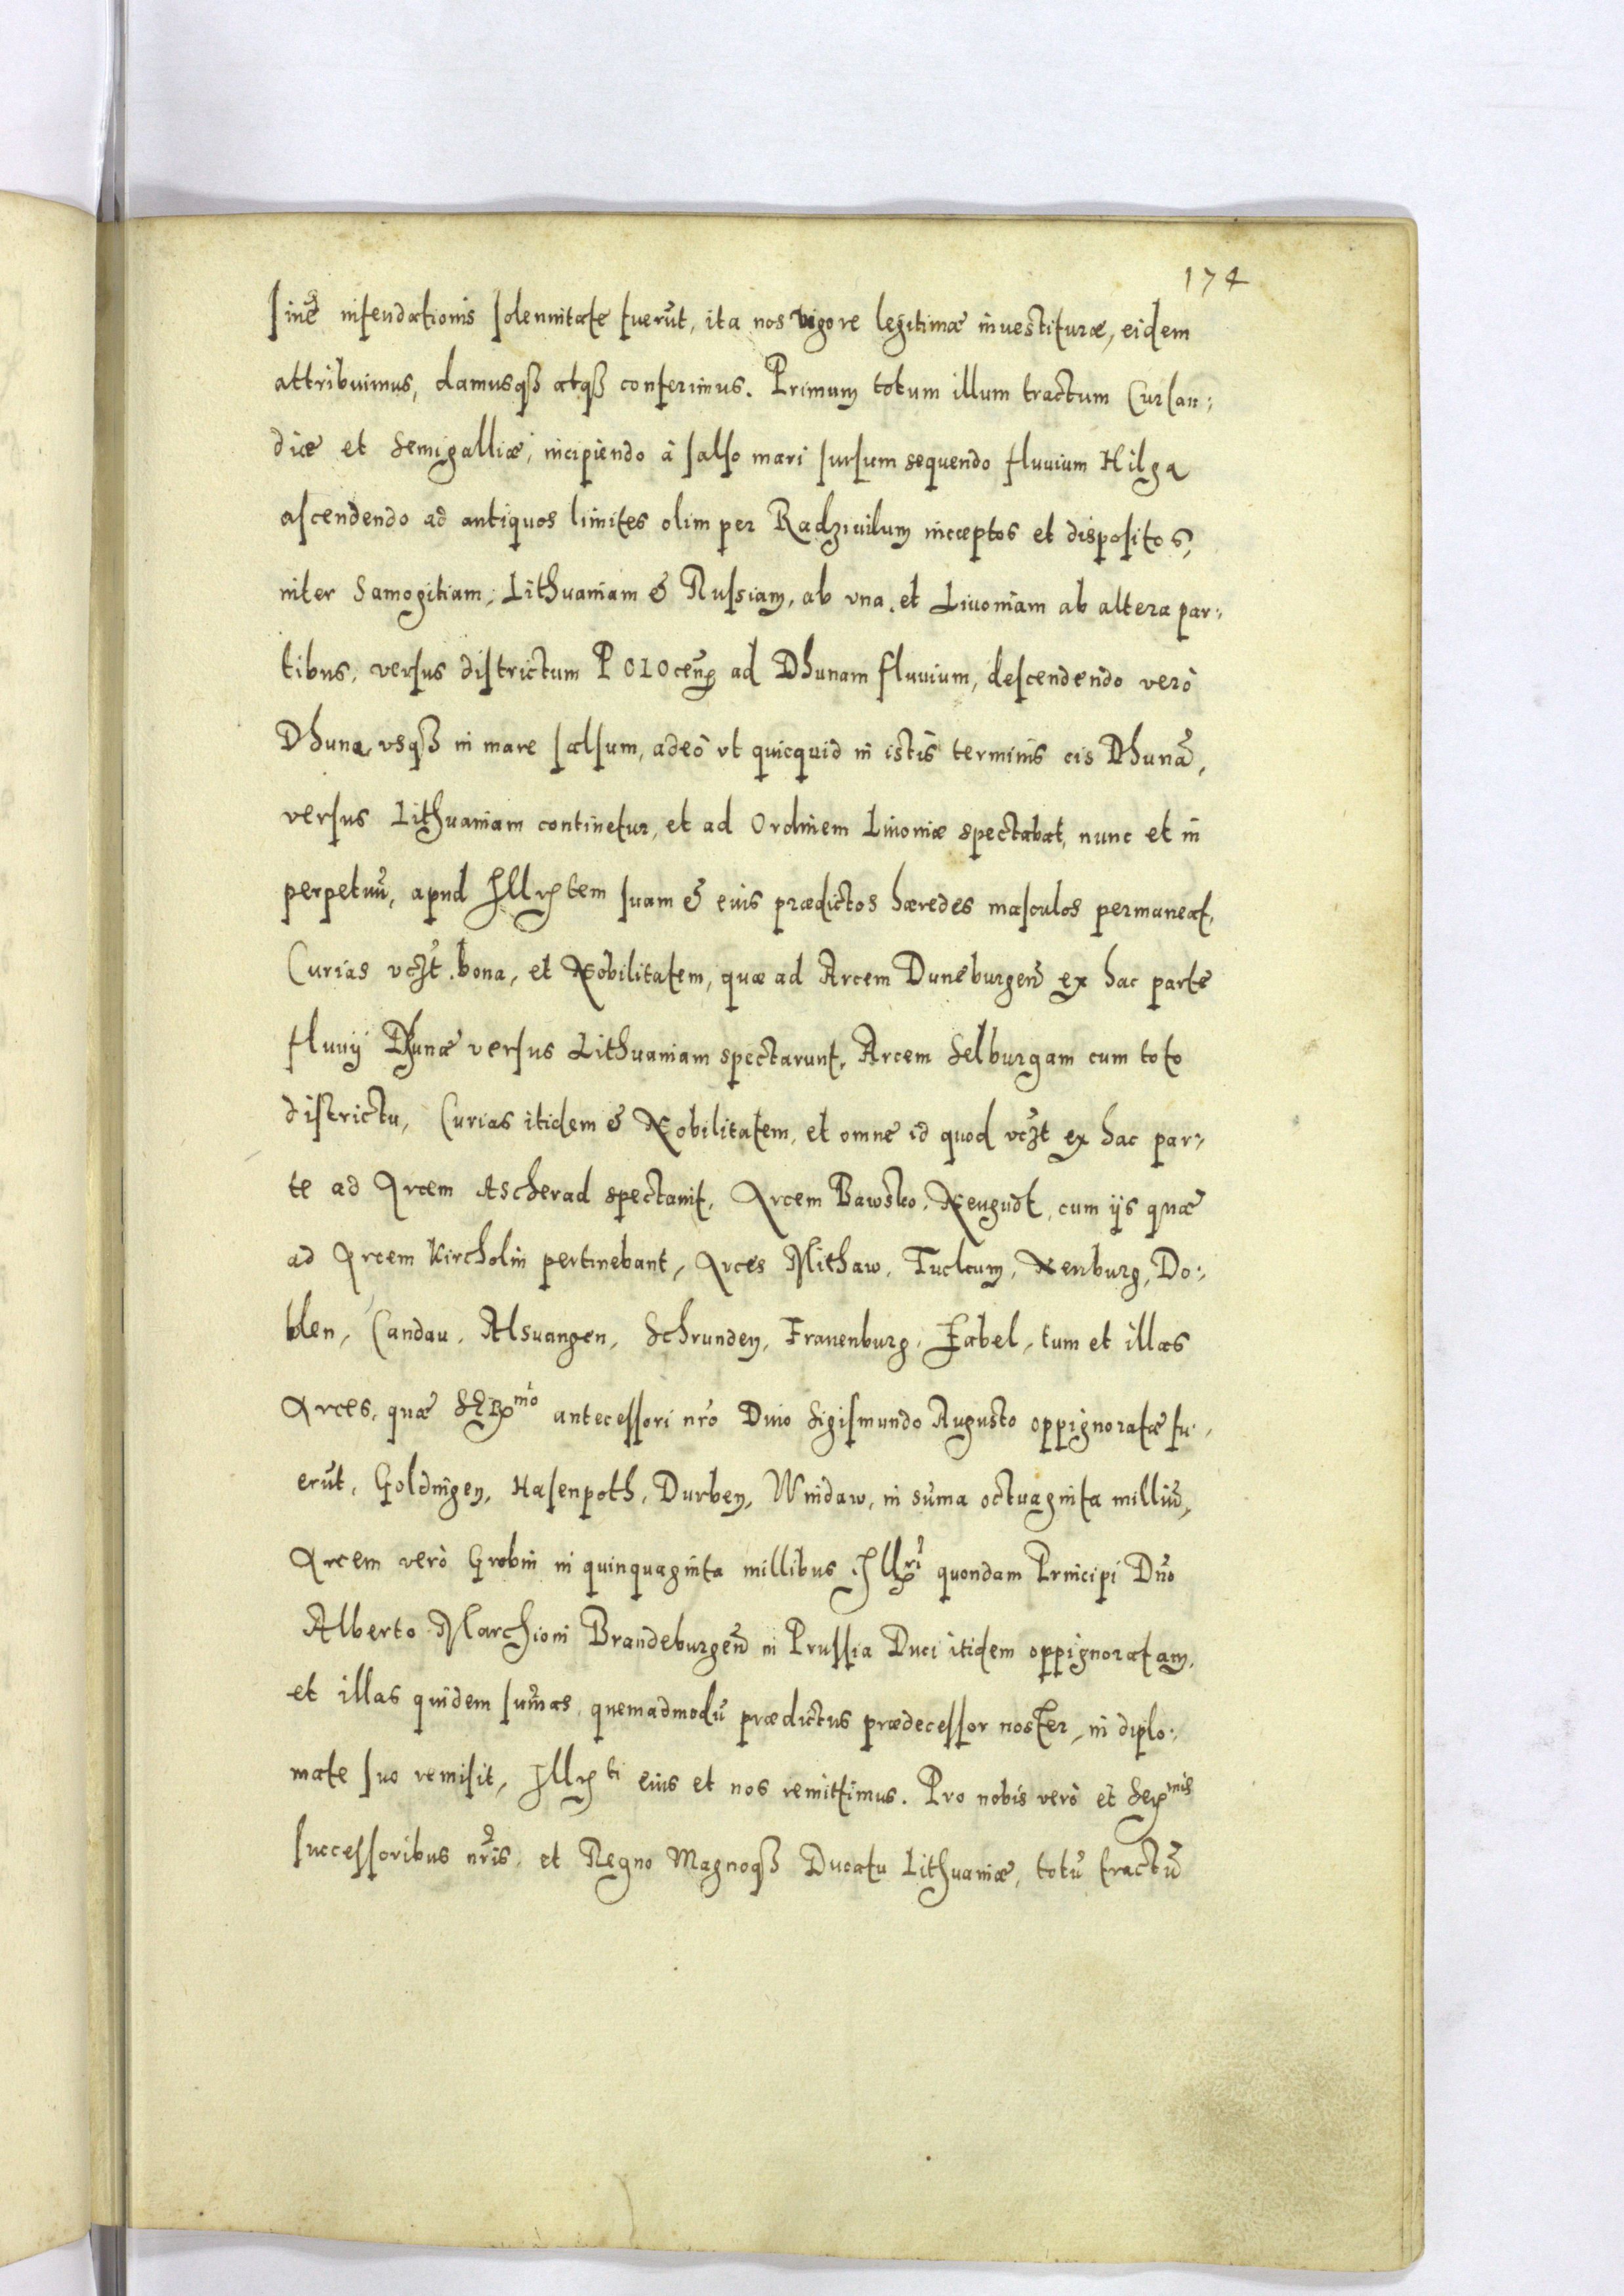 174
sinè infeudationis solennitate fuerūt, ita nos vigore legitimæ inuestituræ, eidem
attribuimus, damusqȝ atqȝ conferimus. Primum totum illum tractum Curlan:
diæ et Semigalliæ, incipiendo à salso mari sursum sequendo fluuium Hilga
ascendendo ad antiquos limites olim per Radziuilum incæptos et dispositos,
inter Samogitiam, Lithuaniam & Russiam, ab vna, et Liuoniam ab altera par:
tibus, versus districtum Polocen̄ ad Dhunam fluuium, descendendo verò
Dhuna, vsqȝ in mare salsum, adeò vt quicquid in istis terminis cis Dhunā,
versus Lithuaniam continetur, et ad Ordinem Liuoniæ spectabat, nunc et in
perpetuū, apud Illrtem suam & eius prædictos hæredes masculos permaneat,
Curias vcȝt. bona, et Nobilitatem, quæ ad Arcem Duneburgen̄ ex hac parte
fluuij Dhunæ versus Lithuaniam spectarunt, Arcem Selburgam cum toto
districtu, Curias itidem & Nobilitatem, et omne id quod vcȝt ex hac par:
te ad Arcem Ascherad spectauit, Arcem Bawsko, Neugudt, cum ijs quæ
ad Arcem Kircholm pertinebant, Arces Mithaw, Tuckum, Neuburg, Do:
blen, Candau, Alsuangen, Schrunden, Frauenburg, Zabel, tum et illas
Arces, quæ Sermo antecessori nr̄o Diuo Sigismundo Augusto oppignoratæ fu:
erūt, Goldingen, Hasenpoth, Durben, Windaw, in sūma octuaginta milliū,
Arcem verò Grobin in quinquaginta millibus Illri quondam Principi Dn̄o
Alberto Marchioni Brandeburgen̄ in Prussia Duci itidem oppignoratam,
et illas quidem sūmas, quemadmodū prædictus prædecessor noster, in diplo:
mate suo remisit, Illrti eius et nos remittimus. Pro nobis verò et Sermis
successoribus nr̄is, et Regno Magnoqȝ Ducatu Lithuaniæ, totū tractū